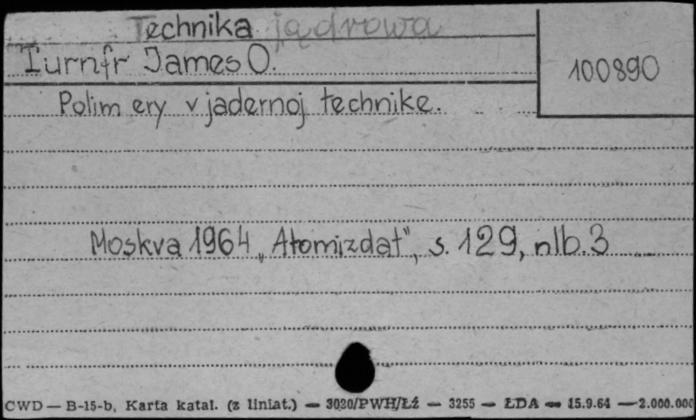 Technika jądrowa
Turnfr James O.
100890
Polimery v jadernoj technike.
Moskva 1964 „Atomizdat”, s. 129, nlb. 3
CWD — B-15-b, Karta katal. (z liniat.) — 3020/PWH/Łź — 3255 — ŁDA — 15.9.64 — 2.000.000